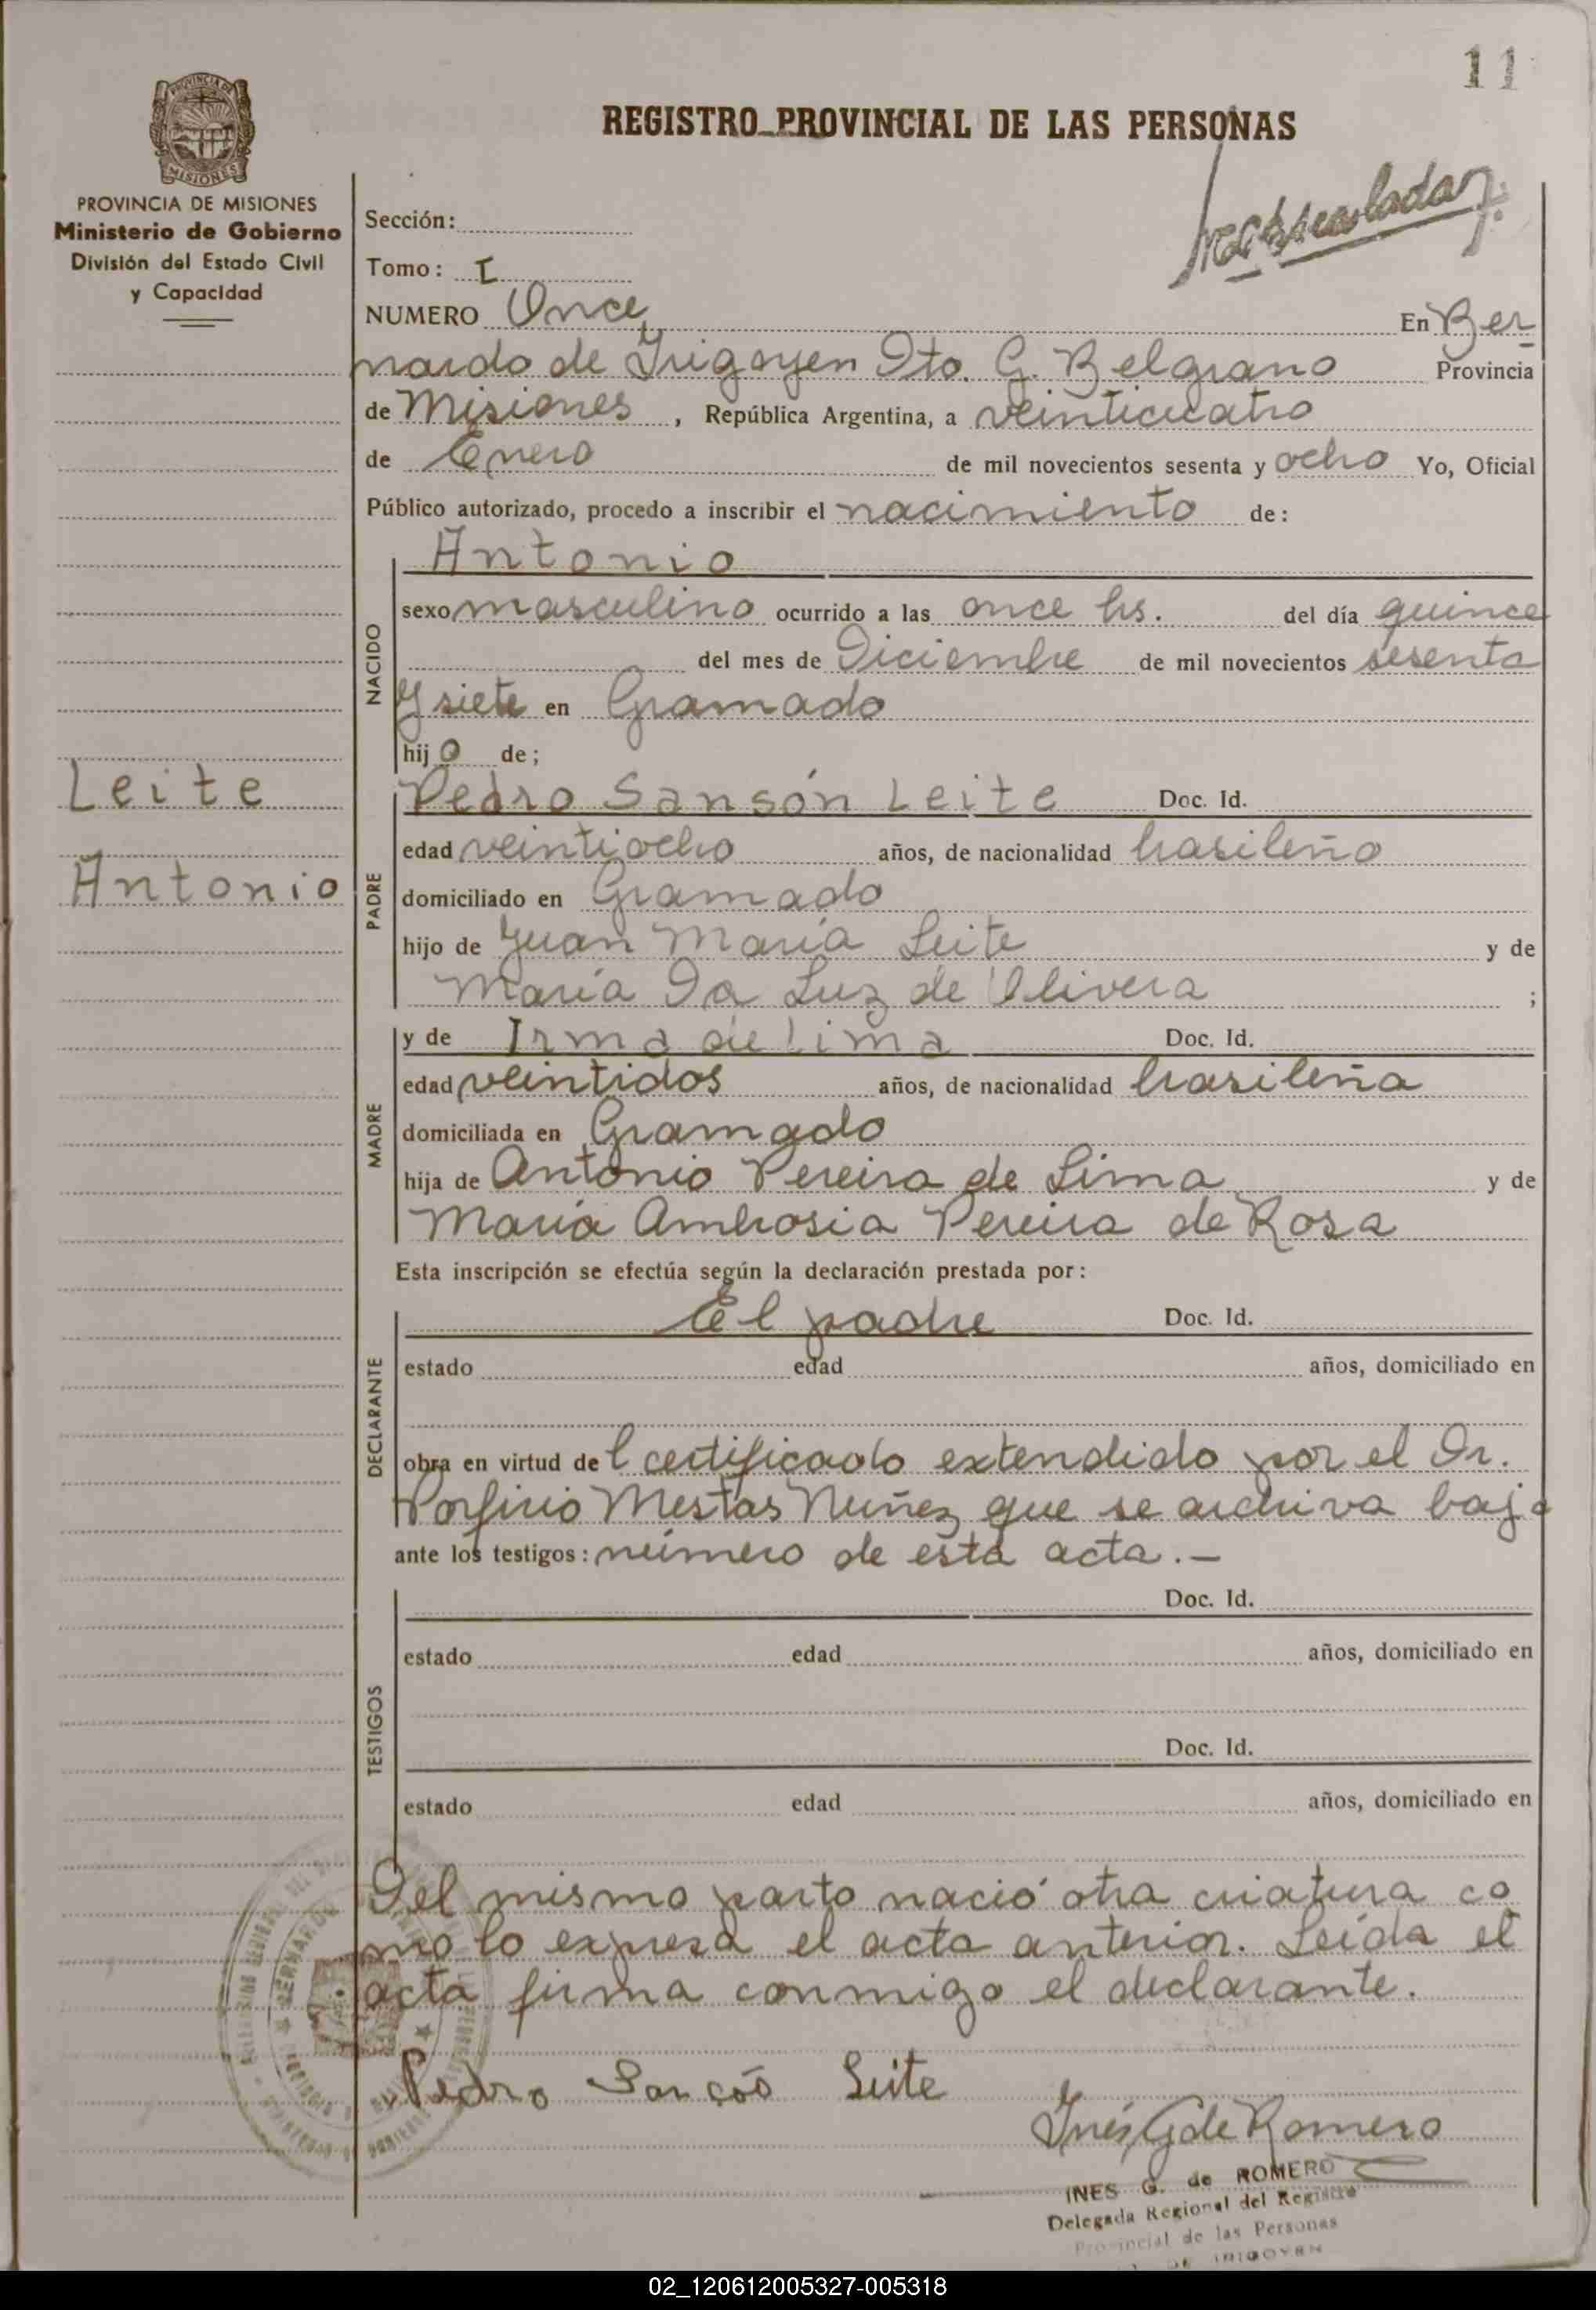 11
REGISTRO PROVINCIAL DE LAS PERSONAS
PROVINCIA DE MISIONES
Ministerio de Gobierno
División del Estado Civil
y Capacidad
Sección:
Tomo: I
NUMERO Once En Ber
nardo de Irigoyen Dto. G. Belgrano Provincia
de Misiones, República Argentina, a veinticuatro
de Enero de mil novecientos sesenta y ocho Yo, Oficial
Público autorizado, procedo a inscribir el nacimiento de:
Antonio
NACIDO
sexo masculino ocurrido a las once hs. del día quince
del mes de Diciembre de mil novecientos sesenta
y siete en Gramado
hijo de;
Leite
Antonio
PADRE
Pedro Sansón Leite Doc. Id.
edad veintiocho años, de nacionalidad brasileño
domiciliado en Gramado
hijo de Juan María Leite y de
María Da Luz de Olivera ;
MADRE
y de Irma de Lima Doc. Id.
edad veintidos años, de nacionalidad brasileña
domiciliada en Gramado
hija de Antonio Pereira de Lima y de
María Ambrosia Pereira de Rosa
Esta inscripción se efectúa según la declaración prestada por:
DECLARANTE
El padre Doc. Id.
estado edad años, domiciliado en
obra en virtud del certificado extendido por el Dr.
Porfirio Mestas Nuñez que se archiva bajo
ante los testigos: número de esta acta.-
TESTIGOS
Doc. Id.
estado edad años, domiciliado en
Doc. Id.
estado edad años, domiciliado en
Del mismo parto nació otra criatura co
mo lo expresa el acta anterior. Leída el
acta firma conmigo el declarante.
Pedro Sançõs Leite
Inés G de Romero
INES G. de ROMERO
Delegada Regional del Registro
Provincial de las Personas
DE IRIGOYEN
02_120612005327-005318